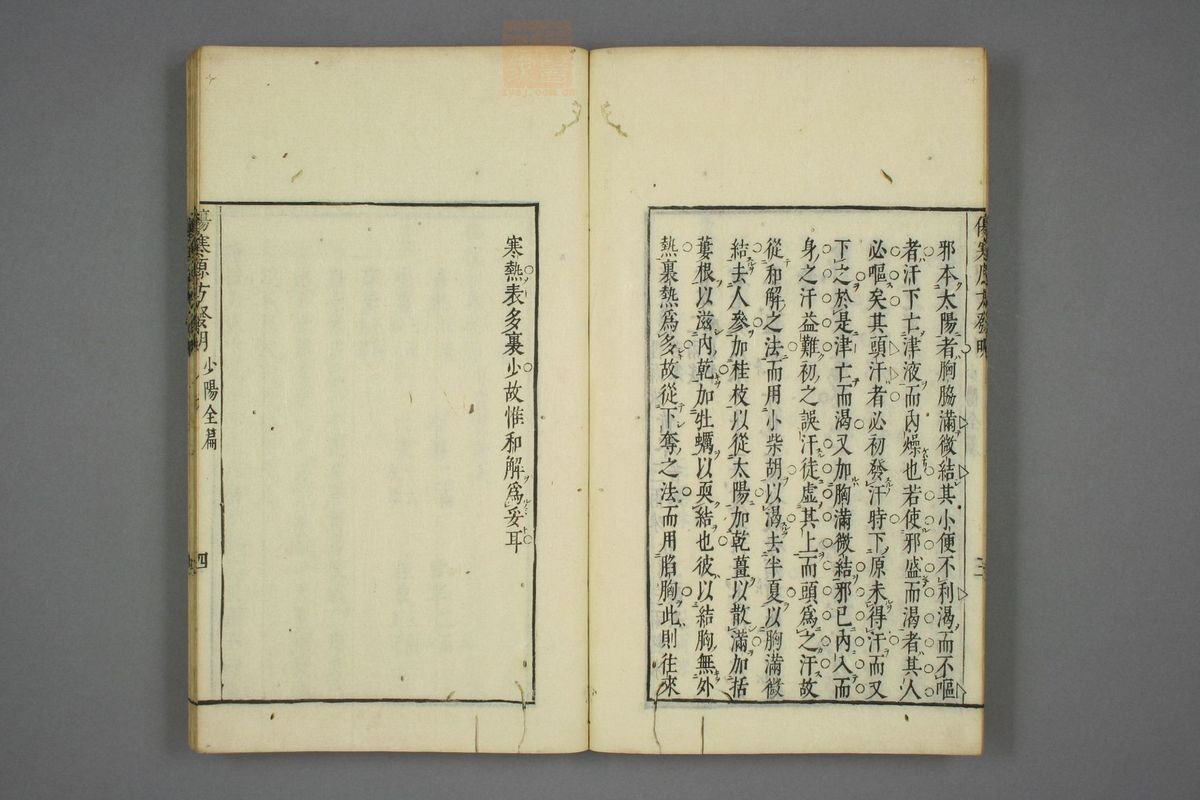 邪本太陽者胸脇滿微結其小便不利渴而不嘔
者汗下亡津液而內燥也若使邪盛而渴者其人
必嘔矣其頭汗者必初發汗時下原未得汗而又
下之於是津亡而渴又加胸滿微結邪已內入而
身之汗益難初之誤汗徒虛其上而頭爲之汗故
從和解之法而用小柴胡以渴去半夏以胸滿微
結去人參加桂枝以從太陽加乾薑以散滿加括
蔞根以滋內乾加牡蠣以耎結也彼以結胸無外
熱裏熱爲多故從下奪之法而用陷胸此則往來
寒熱表多裏少故惟和解爲妥耳
傷寒源方發明 少陽全篇 四